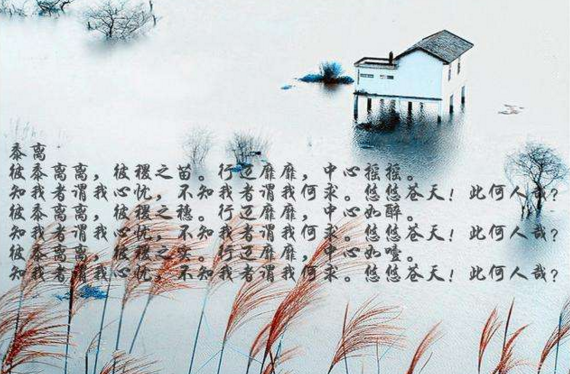 黍离
彼黍离离，彼稷之苗。行迈靡靡，中心摇摇。
知我者谓我心忧，不知我者谓我何求。悠悠苍天！此何人哉？
彼黍离离，彼稷之穗。行迈靡靡，中心如醉。
知我者谓我心忧，不知我者谓我何求。悠悠苍天！此何人哉？
彼黍离离，彼稷之实。行迈靡靡，中心如噎。
知我者谓我心忧，不知我者谓我何求。悠悠苍天！此何人哉？